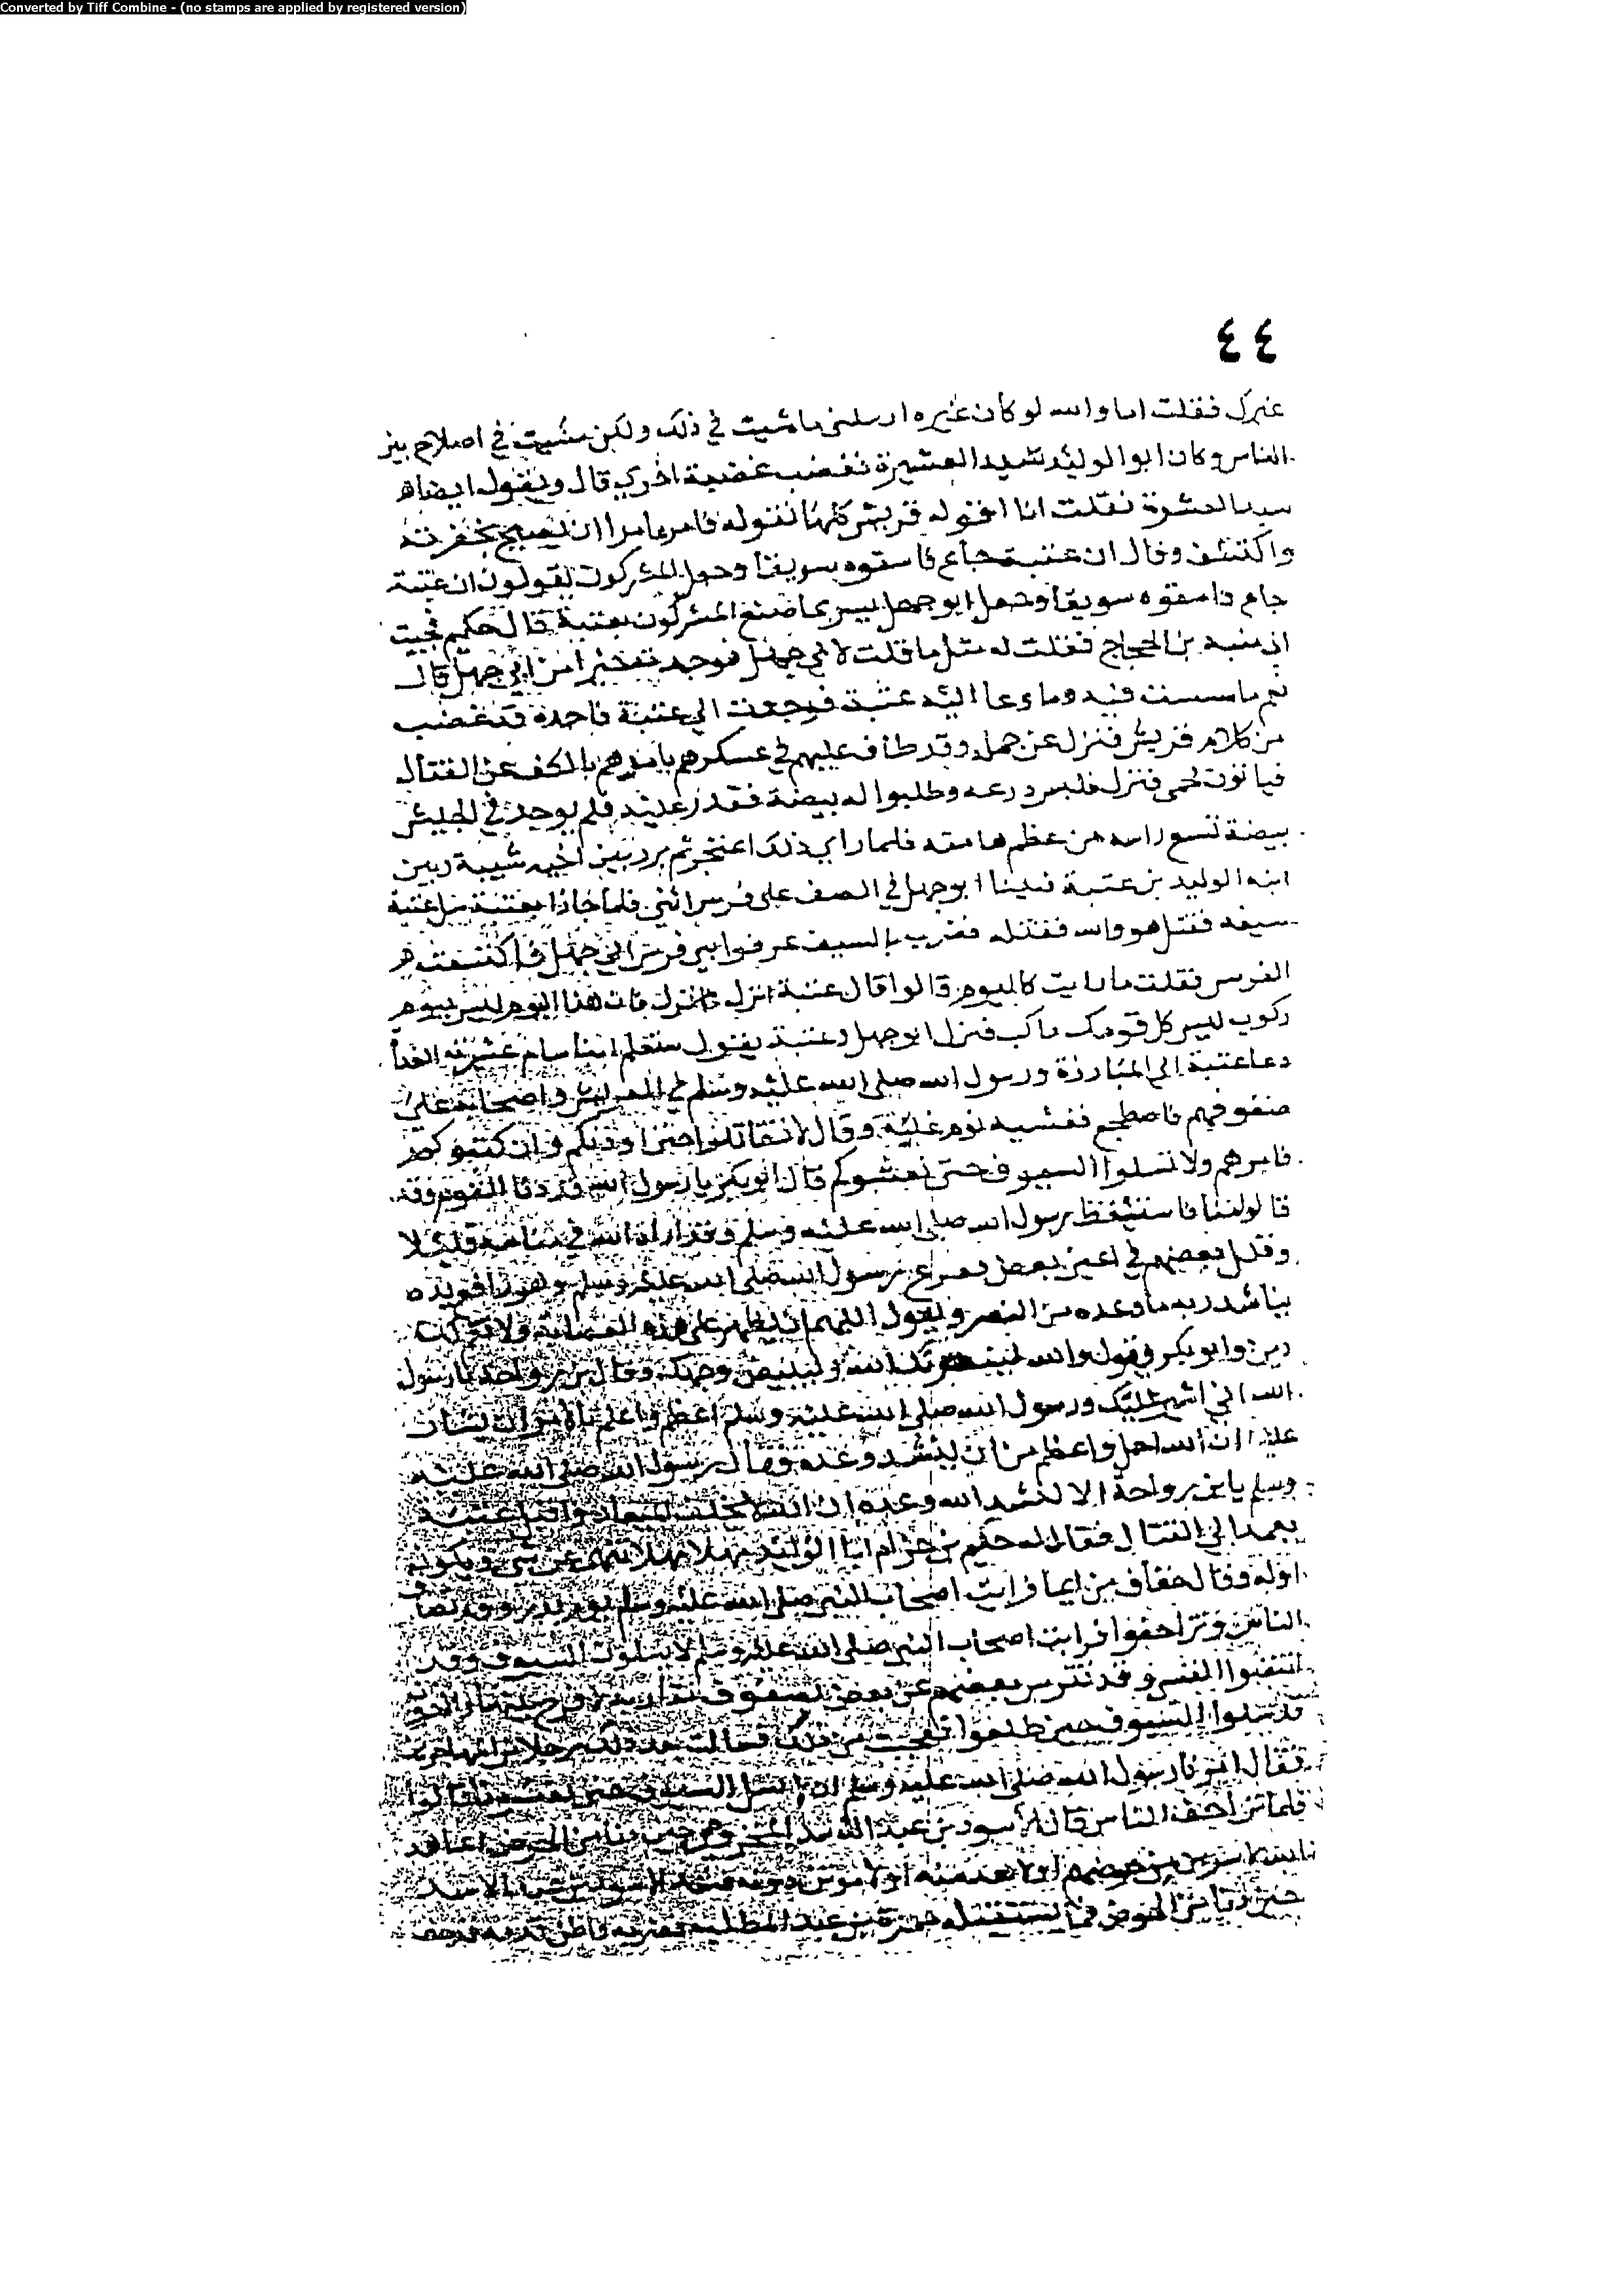 Converted by Tiff Combine - (no stamps are applied by registered version)
٤٤
غيرك فقلت اما والله لو كان غيره ارسلنى ما مشيت في ذلك ولكن مشيت في اصلاح بين
الناس وكان ابو الوليد سيد العشيرة فغضب غضبة اخرى قال وتقول ايضا
سيد العشيرة فقلت انا اقوله قريش كلها تقوله فامر عامرا ان يصيح بخفرته
واكتشف وقال ان عتبة جاع فاسقوه سويقا وجعل المشركون يقولون ان عتبة
جاع فاسقوه سويقا وجعل ابو جهل يسر بما صنع المشركون بعتبة قال حكيم فجيت
الى منبه بن الحجاج فقلت له مثل ما قلت لابي جهل فوجدته خيرا من ابي جهل قال
نعم ما مشيت فيه وما دعا اليه عتبة فرجعت الى عتبة فاجده قد غضب
من كلام قريش فنزل عن جمله وقد طاف عليهم في عسكرهم يامرهم بالكف عن القتال
فيابون فحمى فنزل فلبس درعه وطلبوا له بيضة فقدر عليه فلم يوجد في الجيش
بيضة تسع راسه من عظم هامته فلما راى ذلك اعتجر ثم برز بين اخيه شيبة وبين
ابنه الوليد بن عتبة فبينا ابو جهل في الصف على فرس انثى فلما حاذا بعتبة سل عتبة
سيفه فقيل هو والله فقتله فضرب بالسيف عرقوبي فرس ابي جهل فاكتسعت
الفرس فقلت ما رايت كاليوم قالوا قال عتبة انزل فانزل فان هذا اليوم ليس بيوم
ركوب ليس كل قومك راكب فنزل ابو جهل وعتبة يقول ستعلم اينا شام عشيرته الغداة
دعا عتبة الى المبارزة ورسول الله صلى الله عليه وسلم في العريش واصحابه على
صفوفهم فاضطجع فغشيه نوم غلبه وقال لا تقاتلوا حتى اوذنكم وان كثبوكم
فارموهم ولا تسلوا السيوف حتى يغشوكم قال ابو بكر يا رسول الله قد دنا القوم وقد
نالوا منا فاستيقظ رسول الله صلى الله عليه وسلم وقد اراه الله في منامه قليلا
وقلل بعضهم في اعين بعض ففزع رسول الله صلى الله عليه وسلم وهو رافع يديه
يناشد ربه ما وعده من النصر ويقول اللهم ان تظهر على هذه العصابة
دين وابو بكر يقول والله لينصرنك الله وليبيضن وجهك وقال بن رواحة يا رسول
الله اني اشير عليك ورسول الله صلى الله عليه وسلم اعظم واعلم بالله من ان يشار
عليه ان الله اجل واعظم من ان ينشد وعده فقال رسول الله صلى الله عليه
وسلم يا بن رواحة الا لننشد الله وعده ان الله لا يخلف الميعاد واقبل عتبة
يعمد الى القتال فقال له حكيم بن حزام ابا الوليد مهلا مهلا تنهى عن شى وتكون
اوله وقال خفاف بن ايما فرايت اصحاب النبي صلى الله عليه وسلم يوم بدر وقد تصاف
الناس وتزاحفوا فرايت اصحاب النبي صلى الله عليه وسلم لا يسلون السيوف وقد
انتضوا القسى وقد تترس بعضهم عن بعض
قد سلوا السيوف حين طلعوا فعجبت من ذلك فسالت بعد ذلك رجلا من المهاجرين
فقال امرنا رسول الله صلى الله عليه وسلم ان لا نسل السيوف حتى يغشونا قالوا
فلما تزاحف الناس قال الاسود بن عبد الاسد المخزومي حين دنا من الحوض اعاهد
الله لاشربن من حوضهم او لاهدمنه او لاموتن دونه فشد الاسود بن عبد الاسد
حتى دنا من الحوض فاستقبله حمزة بن عبد المطلب فضربه فاطن قدمه فزحف